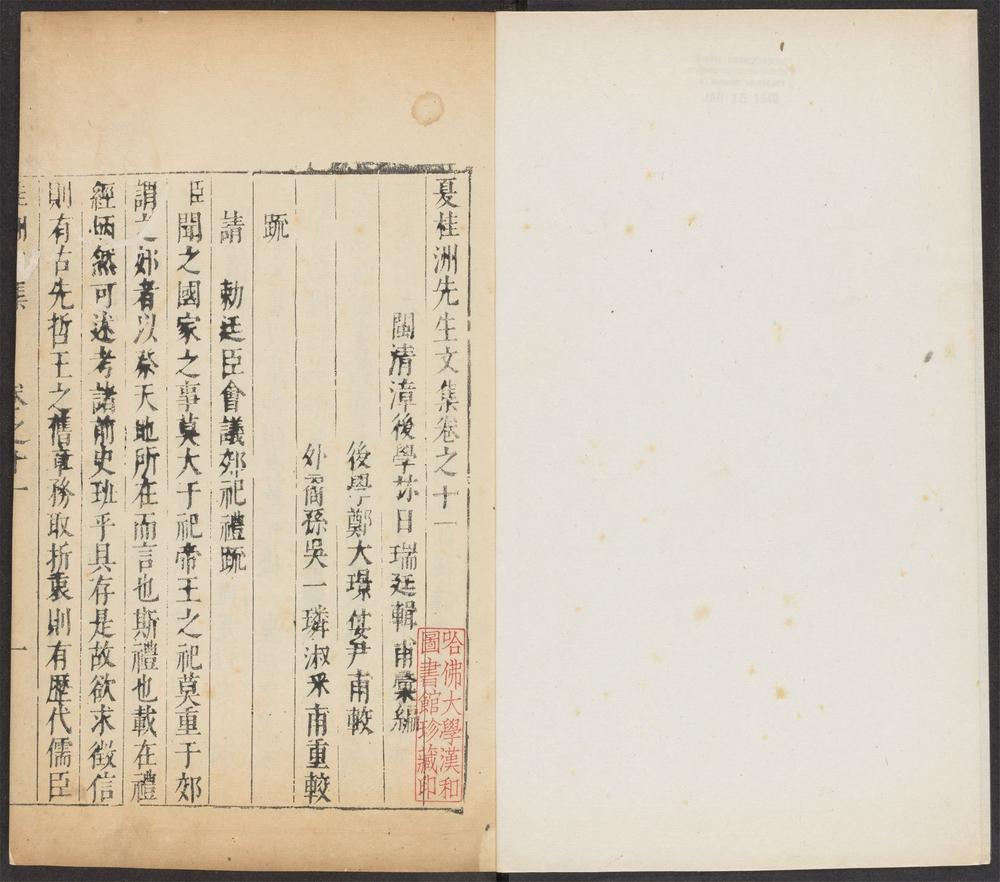 夏桂洲先生文集卷之十一
閩清漳後學林日瑞廷輯甫彙編
後學鄭大璟㚤尹甫較
外裔孫吳一璘淑采甫重較
䟽
請 勅廷臣會議郊祀禮䟽
臣聞之國家之事莫大于祀帝王之祀莫重于郊
謂之郊者以祭天地所在而言也斯禮也載在禮
經炳然可述考諸前史班乎具存是故欲求徵信
則有古先哲王之舊章務取折衷則有歷代儒臣
桂洲 集 卷之十一 一
哈佛大學漢和
圖書館珍藏印
JAN 15